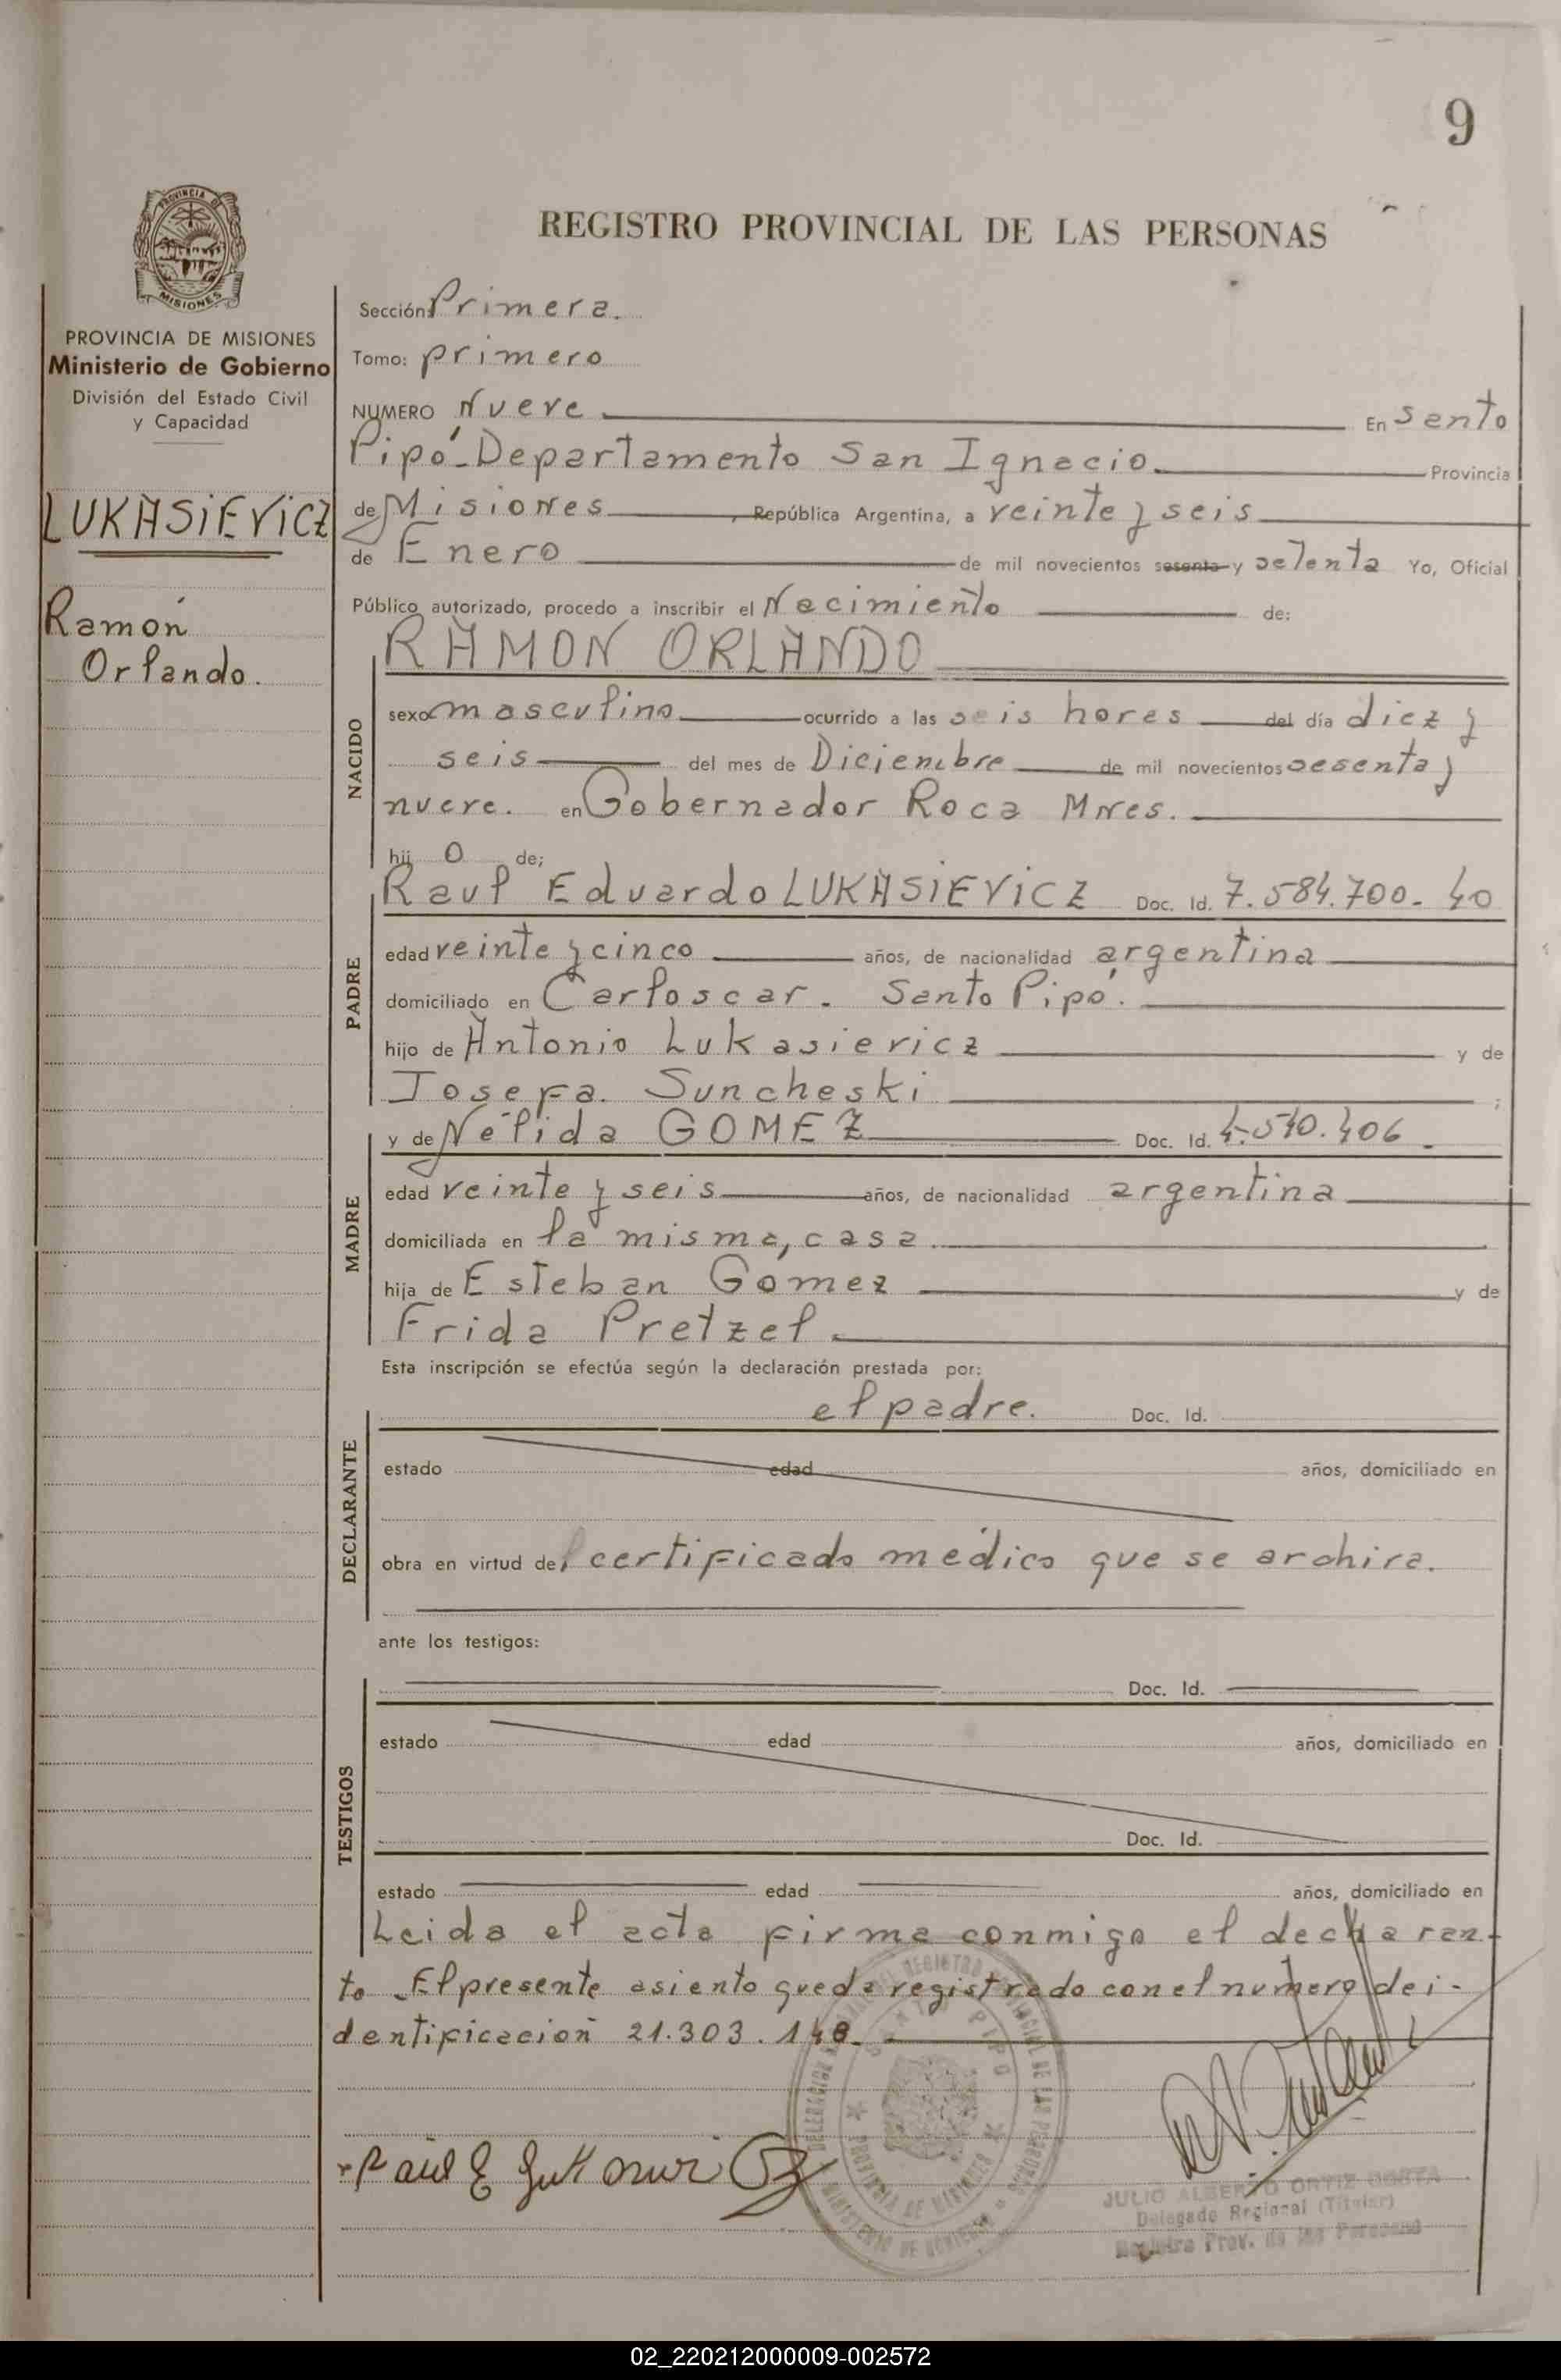 9
REGISTRO PROVINCIAL DE LAS PERSONAS
PROVINCIA DE MISIONES
Ministerio de Gobierno
División del Estado Civil
y Capacidad
LUKASIEVICZ
Ramón
Orlando.
Sección: Primera.
Tomo: primero
NUMERO Nueve En Santo
Pipó-Departamento San Ignacio. Provincia
de Misiones, República Argentina, a veinte y seis
de Enero de mil novecientos sesenta y setenta Yo, Oficial
Público autorizado, procedo a inscribir el Nacimiento de:
NACIDO
RAMON ORLANDO
sexo masculino ocurrido a las seis horas del día diez y
seis del mes de Diciembre de mil novecientos sesenta y
nueve. en Gobernador Roca Mnes.
hij o de;
PADRE
Raul Eduardo LUKASIEVICZ Doc. Id. 7.584.700. 40
edad veinte y cinco años, de nacionalidad argentina
domiciliado en Carloscar. Santo Pipó.
hijo de Antonio Lukasievicz y de
Josefa. Suncheski ;
MADRE
y de Nélida GOMEZ Doc. Id. 4.540.406.
edad veinte y seis años, de nacionalidad argentina
domiciliada en la misma, casa.
hija de Esteban Gómez y de
Frida Pretzel.
Esta inscripción se efectúa según la declaración prestada por:
DECLARANTE
el padre. Doc. Id.
estado edad años, domiciliado en
obra en virtud del certificado médico que se archiva.
ante los testigos:
TESTIGOS
Doc. Id.
estado edad años, domiciliado en
Doc. Id.
estado edad años, domiciliado en
Leida el acta firma conmigo el declaran-
te. El presente asiento queda registrado con el número de i-
dentificación 21.303.148.
Raul E
SANTO PIPO
PROVINCIA DE MISIONES
MINISTERIO DE GOBIERNO
JULIO ALBERTO ORTIZ COSTA
Delegado Regional (Titular)
Registro Prov. de las Personas
02_220212000009-002572